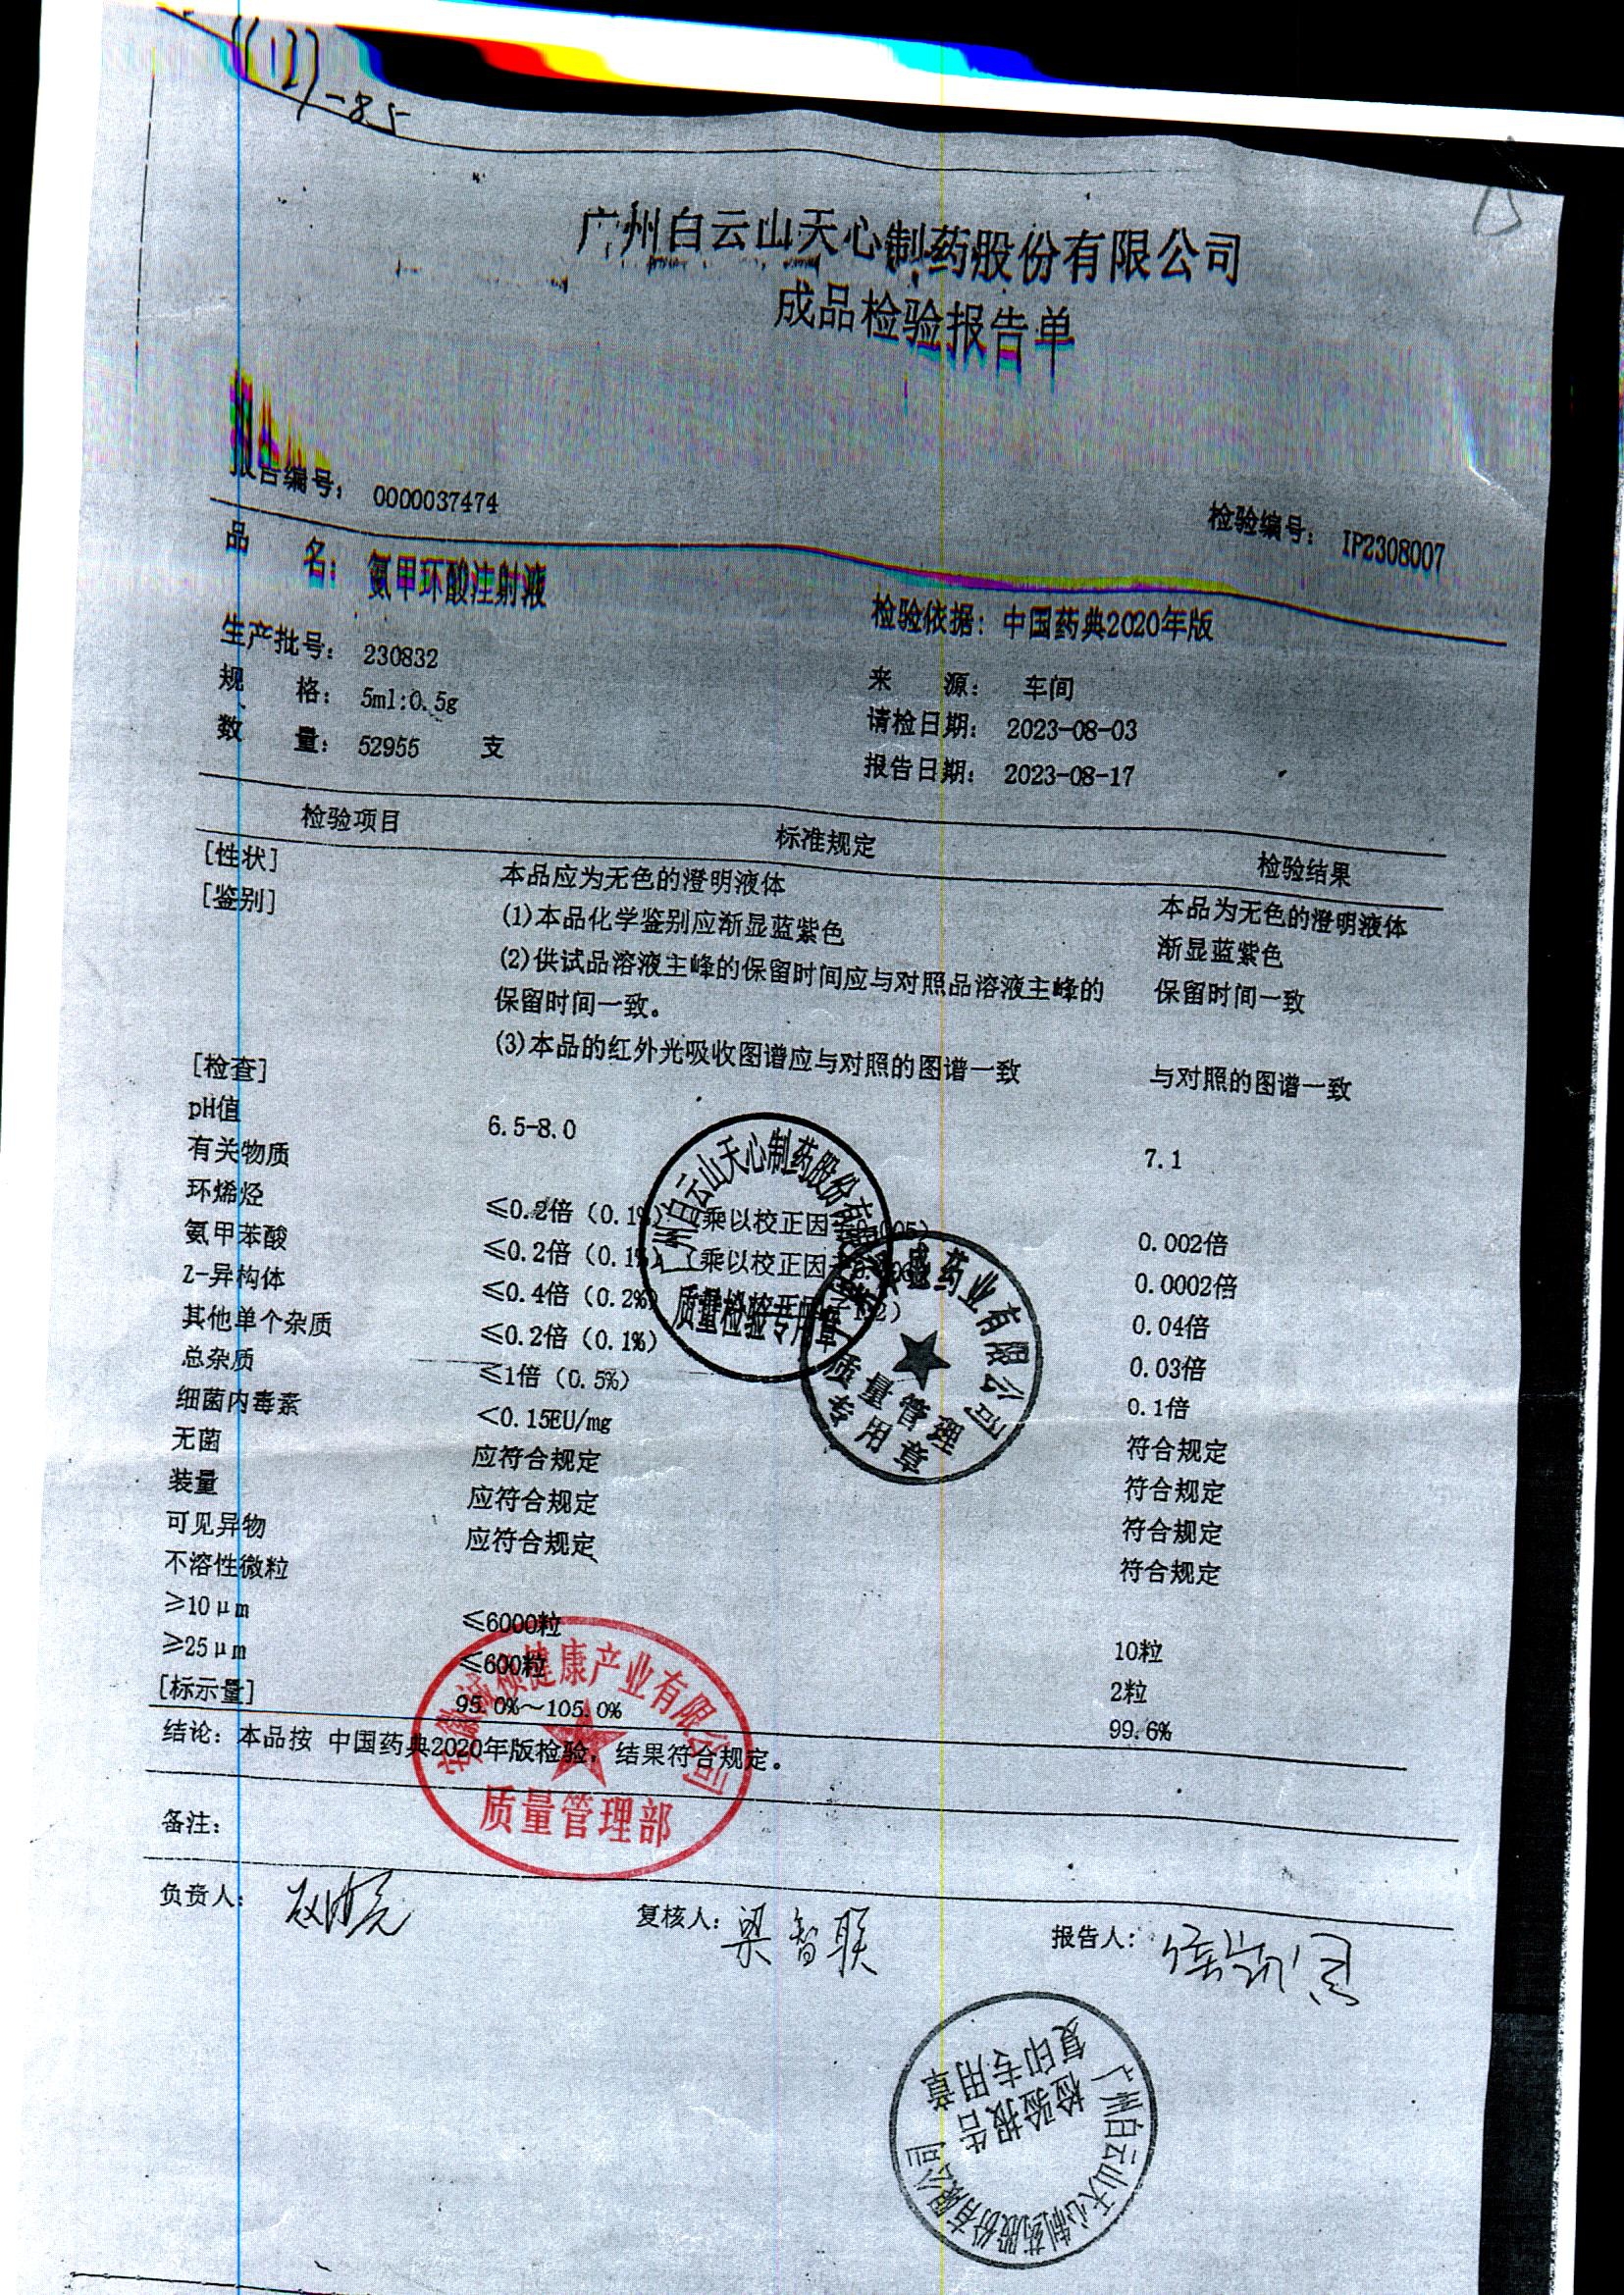 (12)-85
广州白云山天心制药股份有限公司
成品检验报告单
报告编号: 0000037474 检验编号: IP2308007
品 名: 氨甲环酸注射液 检验依据: 中国药典2020年版
生产批号: 230832 来 源: 车间
规 格: 5ml:0.5g 请检日期: 2023-08-03
数 量: 52955 支 报告日期: 2023-08-17
检验项目 标准规定 检验结果
[性状] 本品应为无色的澄明液体 本品为无色的澄明液体
[鉴别] (1)本品化学鉴别应渐显蓝紫色 渐显蓝紫色
(2)供试品溶液主峰的保留时间应与对照品溶液主峰的 保留时间一致
保留时间一致。
(3)本品的红外光吸收图谱应与对照的图谱一致 与对照的图谱一致
[检查]
pH值 6.5-8.0 7.1
有关物质
环烯烃 ≤0.2倍(0.1%)(乘以校正因 0.002倍
氨甲苯酸 ≤0.2倍(0.1%)(乘以校正因 0.0002倍
Z-异构体 ≤0.4倍(0.2%) 0.04倍
其他单个杂质 ≤0.2倍(0.1%) 0.03倍
总杂质 ≤1倍(0.5%) 0.1倍
细菌内毒素 <0.15EU/mg 符合规定
无菌 应符合规定 符合规定
装量 应符合规定 符合规定
可见异物 应符合规定 符合规定
不溶性微粒
≥10μm ≤6000粒 10粒
≥25μm ≤600粒 2粒
[标示量] 95.0%~105.0% 99.6%
结论: 本品按 中国药典2020年版检验, 结果符合规定。
备注:
负责人: 复核人: 梁智联 报告人:
广州白云山天心制药股份有限公司
质量检验专用章
药业有限公司
质量管理
专用章
健康产业有限公司
质量管理部
广州白云山天心制药股份有限公司
检验报告
复印专用章